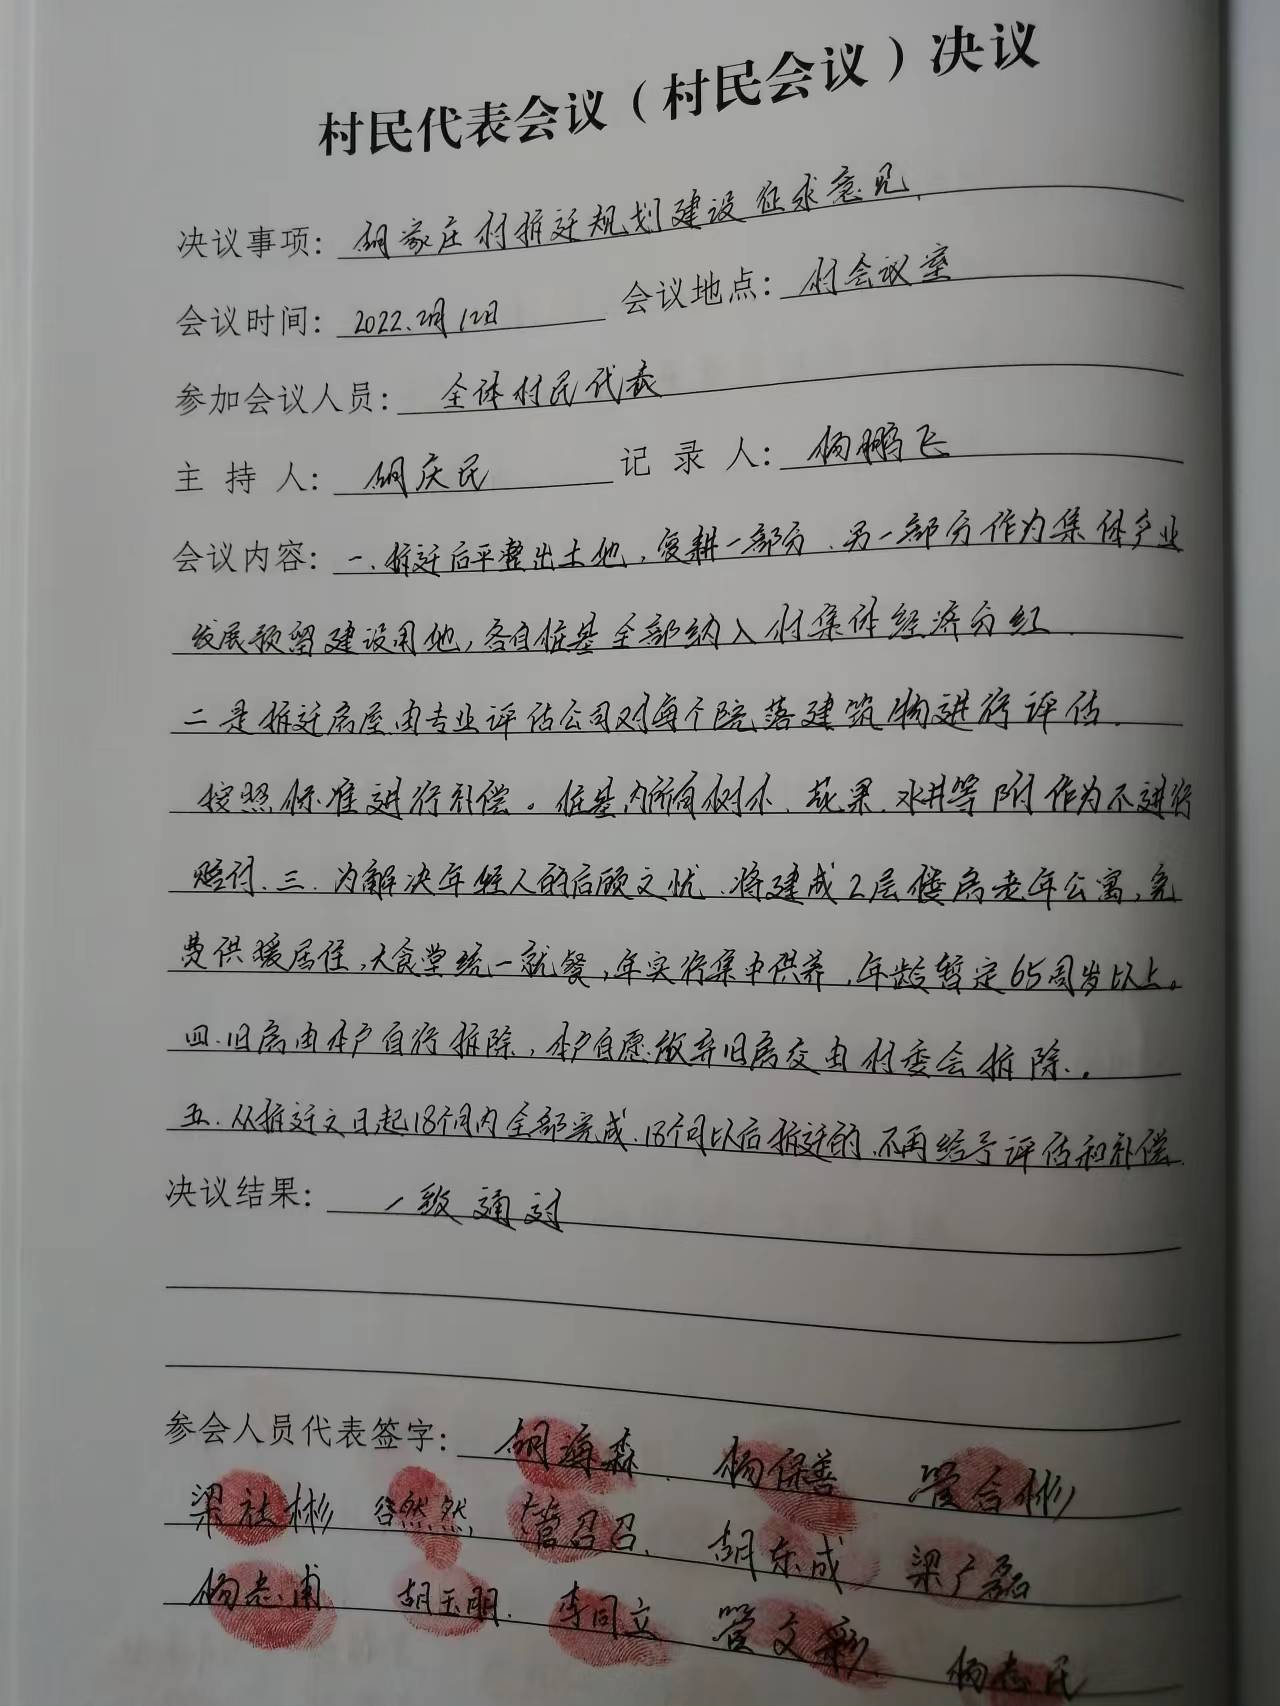 村民代表会议（村民会议）决议
决议事项：胡家庄村拆迁规划建设征求意见.
会议时间：2022.2月12日 会议地点：村会议室
参加会议人员：全体村民代表
主持人：胡庆民 记录人：杨鹏飞
会议内容：一、拆迁后平整出土地，复耕一部分、另一部分作为集体产业
发展预留建设用地，各自庄基全部纳入村集体经济分红.
二是拆迁房屋由专业评估公司对每个院落建筑物进行评估.
按照标准进行补偿。庄基内所有树木、花果、水井等附作为不进行
赔付.三.为解决年轻人的后顾之忧.将建成2层楼房老年公寓，免
费供暖居住，大食堂统一就餐，年实行集中供养，年龄暂定65周岁以上。
四.旧房由本户自行拆除，本户自愿放弃旧房交由村委会拆除.。
五.从拆迁之日起18个月内全部完成.18个月以后拆迁的.不再给予评估和补偿.
决议结果：一致通过
参会人员代表签字：胡海森 杨保善 管合彬
梁社彬 谷然然 管召召. 胡东成 梁广磊
杨志甫 胡玉朋. 李同立 管文彩 杨志民